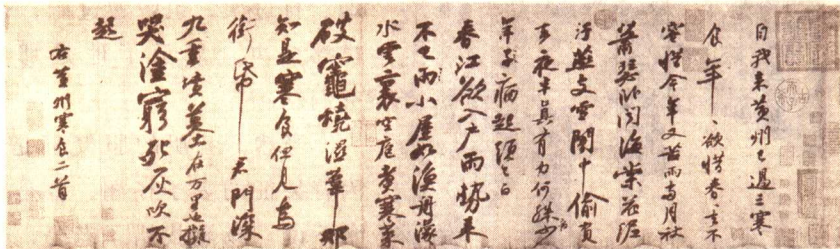 自我來黃州已過三寒
食年々欲惜春々去不
容惜今年又苦雨兩月秋
蕭瑟臥聞海棠花泥
汙燕支雪闇中偷負
去夜半真有力何殊病少
年子病起頭已白
春江欲入戶雨勢來
不已雨小屋如漁舟濛々
水雲裏空庖煮寒菜
破竈燒濕葦那
知是寒食但見烏
銜帋君門深
九重墳墓在萬里也擬
哭塗窮死灰吹不
起
右黃州寒食二首